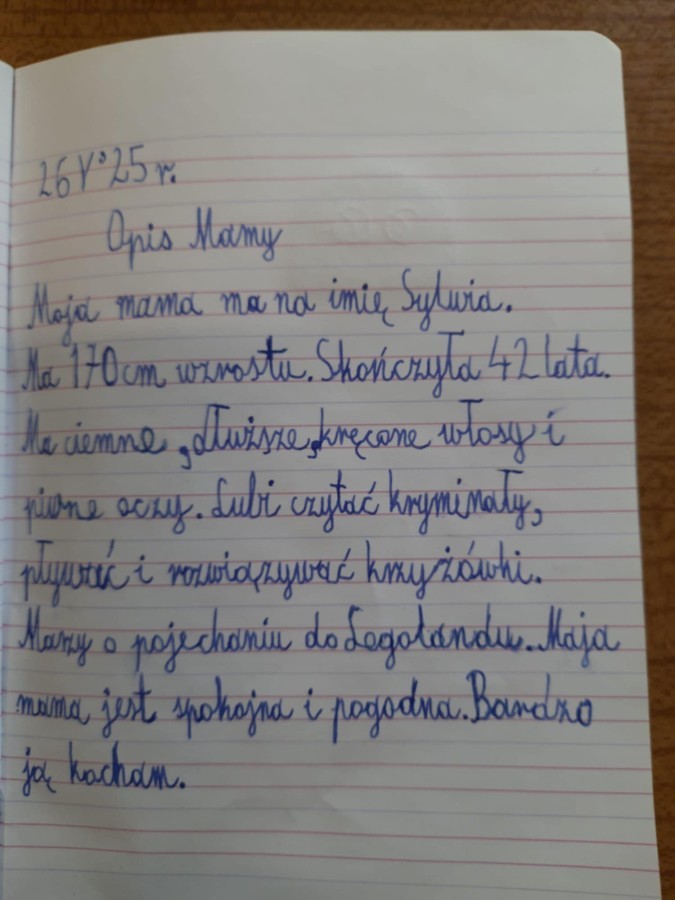 26 V'25 r.
Opis Mamy
Moja mama ma na imię Sylwia.
Ma 170 cm wzrostu. Skończyła 42 lata.
Ma ciemne, dłuższe, kręcone włosy i
piwne oczy. Lubi czytać kryminały,
pływać i rozwiązywać krzyżówki.
Marzy o pojechaniu do Legolandu. Moja
mama jest spokojna i pogodna. Bardzo
ją kocham.